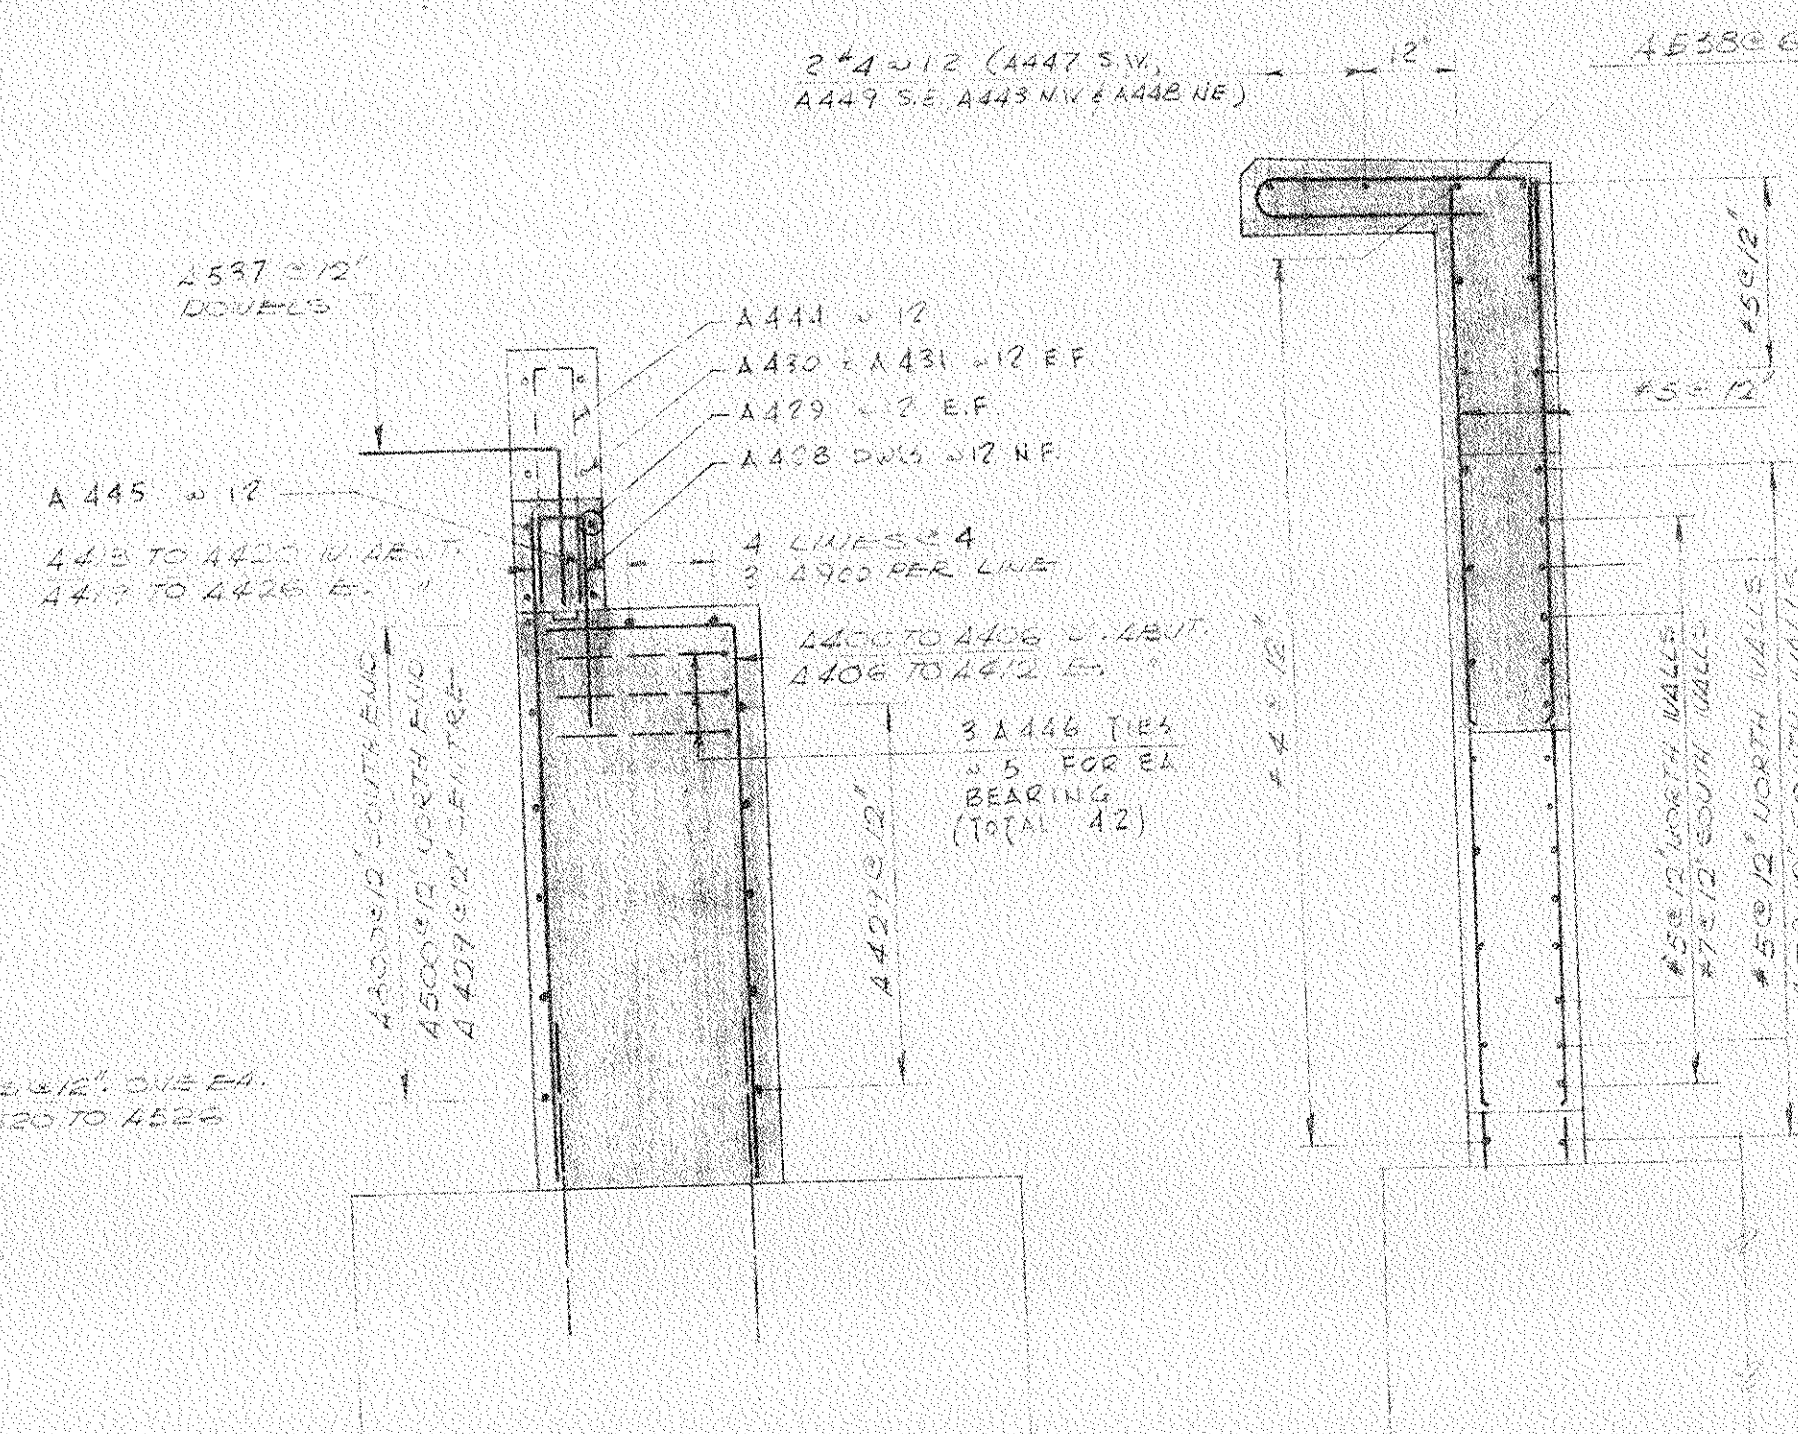 2 #4 @ 12 (A447 S.W.,
A449 S.E. A443 N.W & A448 NE)
12"
A538 @ 6
A537 @ 12"
DOWELS
A 444 @ 12
A 430 & A 431 @ 12 E.F.
A 429 @ 12 E.F.
A 428 DWLS @ 12 N.F.
A 445 @ 12
A413 TO A420 W. ABUT.
TO A426 E. "
4 LINES @ 4
3 A900 PER LINE
A400 TO A406 W. ABUT.
A406 TO A412 E. "
3 A 446 TIES
@ 5 FOR EA
BEARING
(TOTAL 42)
A421 @ 12"
@ 12" SOUTH END
A500 @ 12" NORTH END
A 427 @ 12" CENTRE
@ 12". ONE EA.
TO A526
#5 @ 12"
#5 @ 12"
#4 @ 12"
#5 @ 12" NORTH WALLS
#7 @ 12" SOUTH WALLS
#5 @ 12" NORTH WALLS